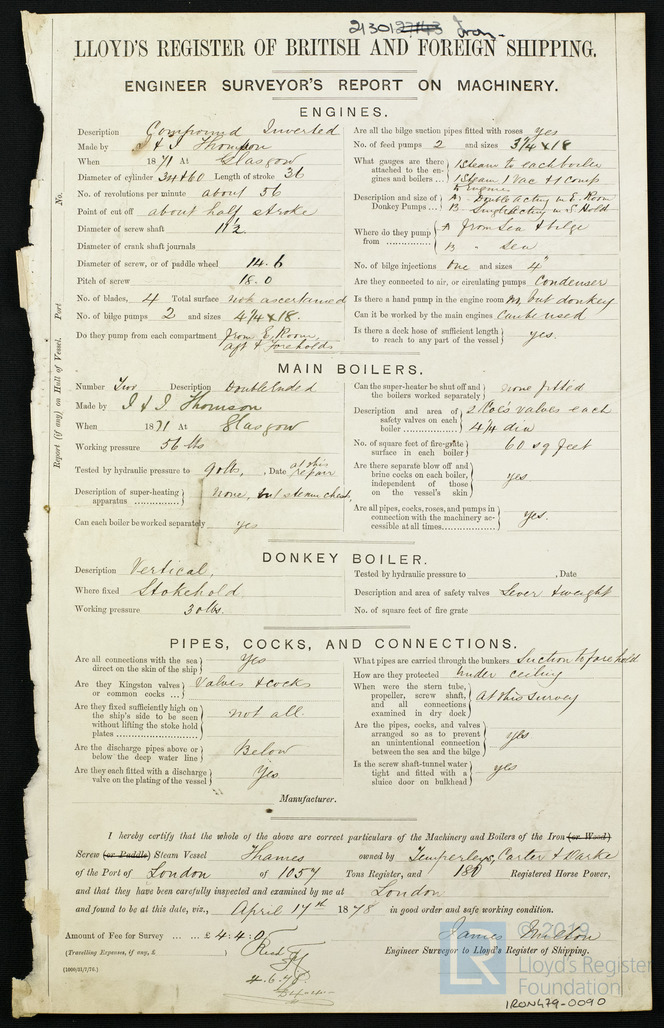 21301 27143 Iron.
LLOYD'S REGISTER OF BRITISH AND FOREIGN SHIPPING.
ENGINEER SURVEYOR'S REPORT ON MACHINERY.
No.
Port
Report (if any) on Hull of Vessel.
ENGINES.
Description Compound Inverted
Made by J & J Thomson
When 1871 At Glasgow
Diameter of cylinder 34 & 60 Length of stroke 36
No. of revolutions per minute about 56
Point of cut off about half stroke
Diameter of screw shaft 11 1/2
Diameter of crank shaft journals
Diameter of screw, or of paddle wheel 14.6
Pitch of screw 18.0
No. of blades, 4 Total surface not ascertained
No. of bilge pumps 2 and sizes 4 1/4 x 18.
Do they pump from each compartment from E. Room,
aft & Foreholds
Are all the bilge suction pipes fitted with roses yes
No. of feed pumps 2 and sizes 3 1/4 x 18
What gauges are there attached to the engines and boilers ... 1 Steam to each boiler
1 Steam 1 Vac & 1 Comp
to Engines
Description and size of Donkey Pumps ... A - Double acting in E. Room
B - Single acting in S. Hold
Where do they pump from ............... A From Sea & bilge
B " Sea
No. of bilge injections One and sizes 4"
Are they connected to air, or circulating pumps Condenser
Is there a hand pump in the engine room No, but donkey
Can it be worked by the main engines Can be used
Is there a deck hose of sufficient length to reach to any part of the vessel yes.
MAIN BOILERS.
Number Two Description Double Ended
Made by J & J Thomson
When 1871 At Glasgow
Working pressure 56 lbs
Tested by hydraulic pressure to 90 lbs, , Date at this repair
Description of super-heating apparatus .............. None, but steam chest,
Can each boiler be worked separately yes
Can the super-heater be shut off and the boilers worked separately none fitted
Description and area of safety valves on each boiler ............... 2 valves each
4 1/4 dia
No. of square feet of fire-grate surface in each boiler 60 sq feet
Are there separate blow off and brine cocks on each boiler, independent of those on the vessel's skin yes
Are all pipes, cocks, roses, and pumps in connection with the machinery accessible at all times........... yes.
DONKEY BOILER.
Description Vertical.
Where fixed Stokehold
Working pressure 30 lbs.
Tested by hydraulic pressure to , Date
Description and area of safety valves Lever & weight
No. of square feet of fire grate
PIPES, COCKS, AND CONNECTIONS.
Are all connections with the sea direct on the skin of the ship Yes
Are they Kingston valves or common cocks ... Valves & cocks
Are they fixed sufficiently high on the ship's side to be seen without lifting the stoke hold plates ................... not all.
Are the discharge pipes above or below the deep water line Below
Are they each fitted with a discharge valve on the plating of the vessel Yes
What pipes are carried through the bunkers Suction to forehold
How are they protected Under ceiling
When were the stern tube, propeller, screw shaft, and all connections examined in dry dock At this survey
Are the pipes, cocks, and valves arranged so as to prevent an unintentional connection between the sea and the bilge yes
Is the screw shaft-tunnel water tight and fitted with a sluice door on bulkhead yes
Manufacturer.
I hereby certify that the whole of the above are correct particulars of the Machinery and Boilers of the Iron (or Wood)
Screw (or Paddle) Steam Vessel Thames owned by Temperleys, Carter & Darke
of the Port of London of 1057 Tons Register, and 180 Registered Horse Power,
and that they have been carefully inspected and examined by me at London
and found to be at this date, viz., April 17th 1878 in good order and safe working condition.
Amount of Fee for Survey ... ... £ 4.4.0
(Travelling Expenses, if any, £ )
James Milton
Engineer Surveyor to Lloyd's Register of Shipping.
4.6.78
© 2019
LR
Lloyd's Register
Foundation
IRON479-0090